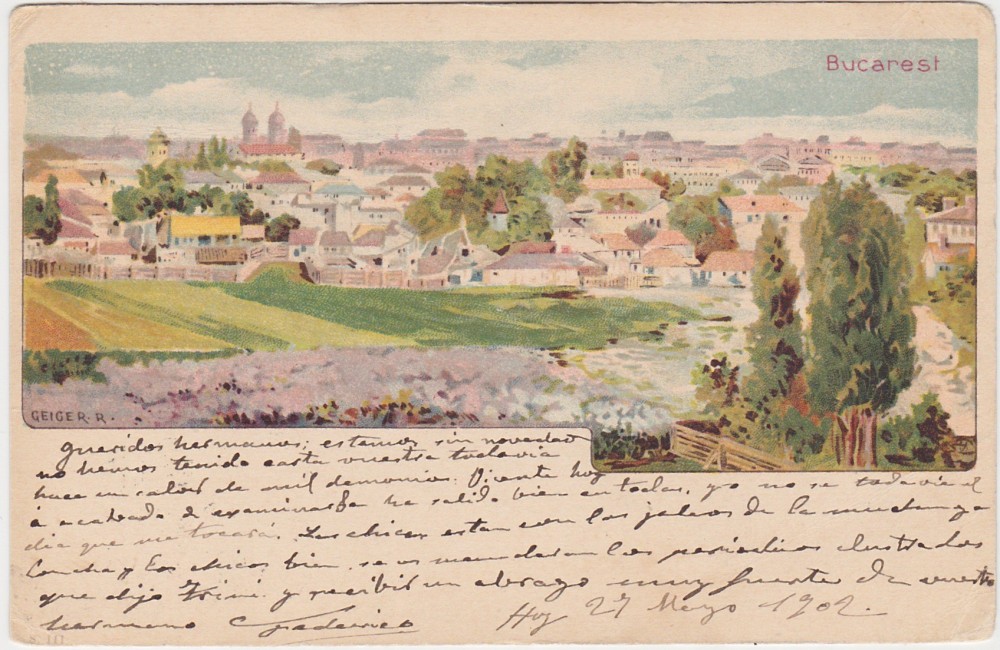 Bucarest
GEIGER. R.
Queridos hermanos; estamos sin novedad
no hemos tenido carta vuestra todavia
hace un calor de mil demonios. Vicente hoy
á acabado de examinarse ha salido bien en todas, yo no se todavia el
dia que me tocará. Las chicas estan con los jaleos de la mudanza
Concha y los chicos bien, se os mandaran los periodicos ilustrados
que dijo Trini y recibir un abrazo muy fuerte de vuestro
hermano Federico
Hoy 27 Mayo 1902.